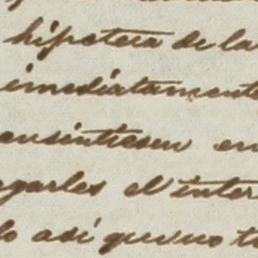 hipoteca de la
imediatamente
ensintiesen en
garles el inter
lo así que no t